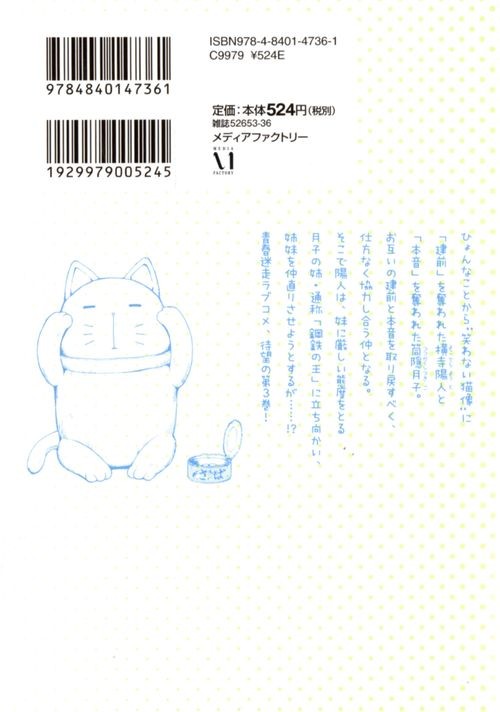 ISBN978-4-8401-4736-1
C9979 ¥524E
9784840147361
定価：本体524円(税別)
雑誌52653-36
メディアファクトリー
MEDIA
FACTORY
1929979005245
ひょんなことから“笑わない猫像”に
「建前」を奪われた横寺陽人と
「本音」を奪われた筒隠月子。
お互いの建前と本音を取り戻すべく、
仕方なく協力し合う仲となる。
そこで陽人は、妹に厳しい態度をとる
月子の姉・通称「鋼鉄の王」に立ち向かい、
姉妹を仲直りさせようとするが……!?
青春迷走ラブコメ、待望の第3巻!
さば